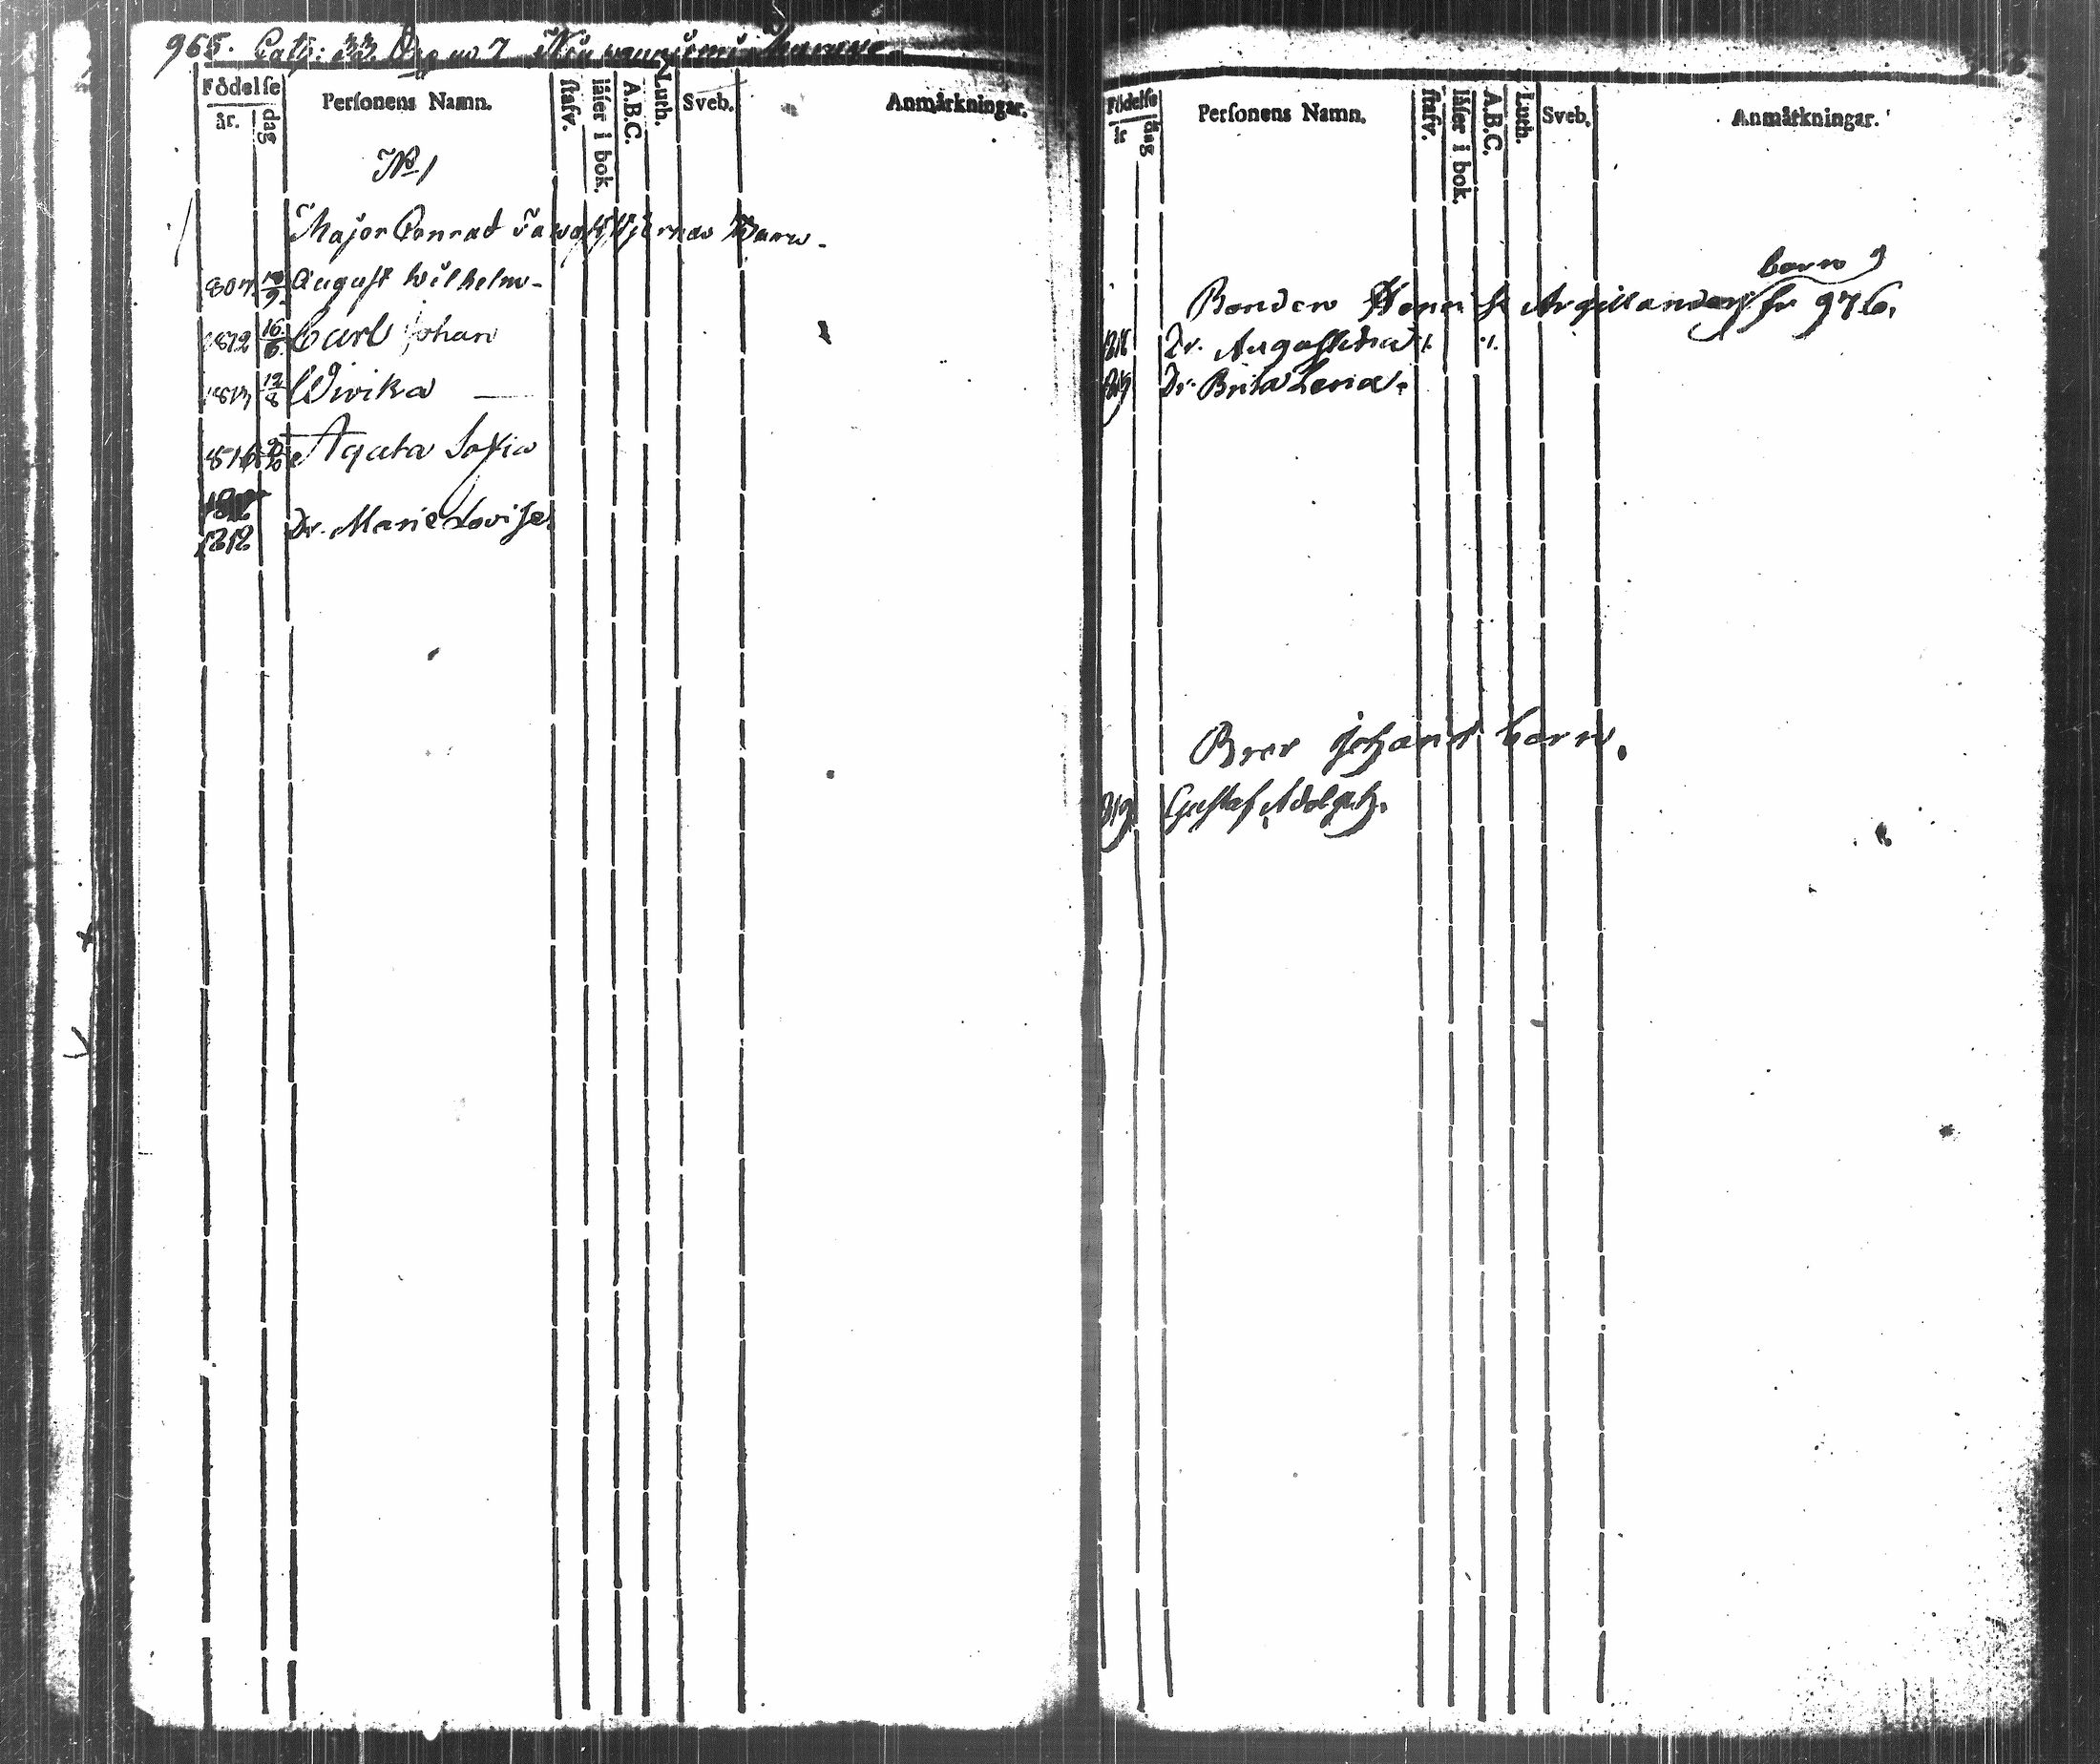 965. Catb: 33. No 7
Födelse Personens Namn. stafv. läser i bok. A.B.C. Luth. Sveb. Anmärkningar.
år. dag
No 1
Major Conrad Barn.
807. 9. August Wilhelm
1812 16/6. Carl Johan
1813 12/8 Wivika
816 Agata Sofia
1818 Dr. Marie Lovisa
Födelse Personens Namn. stafv. läser i bok. A.B.C. Luth. Sveb. Anmärkningar.
år dag
barn
Bonden Henrik Argillander fr 976.
Dr. Augustina
819 Dr. Brita Lena.
Bror Johans barn.
819 Gustaf Adolph.